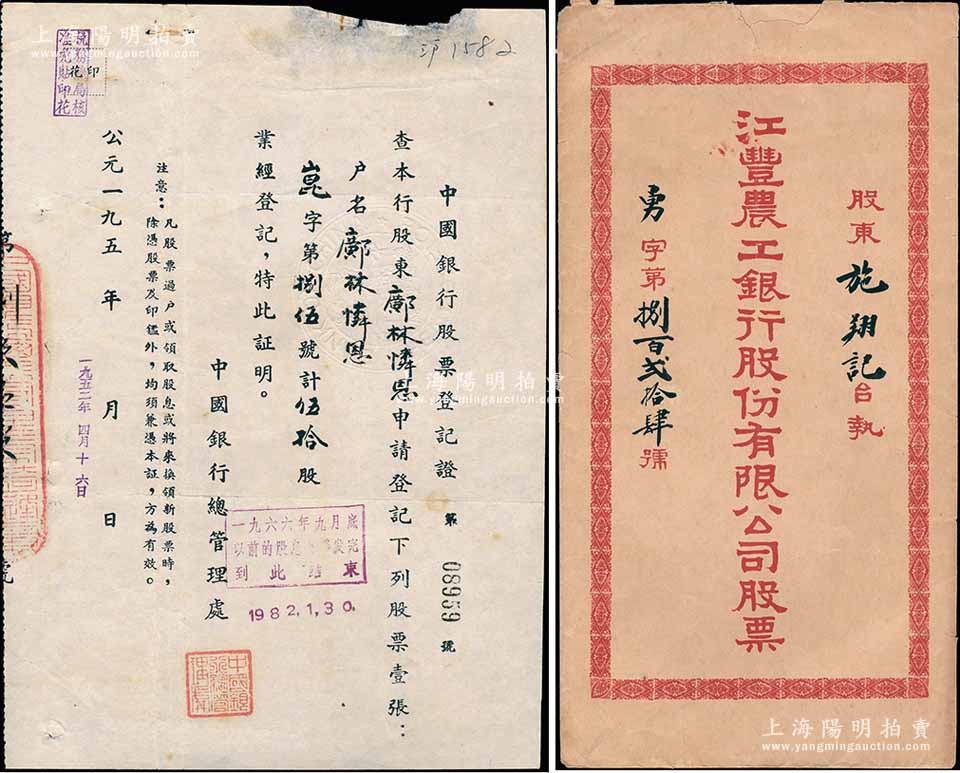 沪1582
中國銀行股票登記證 第 08959 號
查本行股東鄺林憐恩申請登記下列股票壹張：
户名鄺林憐恩
崑字第捌伍號計伍拾股
業經登記，特此証明。
中國銀行總管理處
一九六六年九月底
以前的股息
到此結束
1982.1.30.
注意：凡股票過户或領取股息或將來換領新股票時，
除憑股票及印鑑外，均須兼憑本証，方為有效。
公元一九五 年 月 日
一九五二年 四月十六日
印花
稅務局核
准免貼印花
股東施翔記台執
江豐農工銀行股份有限公司股票
勇字第捌百弍拾肆號
上海陽明拍賣
www.yangmingauction.com
上海陽明拍賣
www.yangmingauction.com
上海陽明拍賣
www.yangmingauction.com